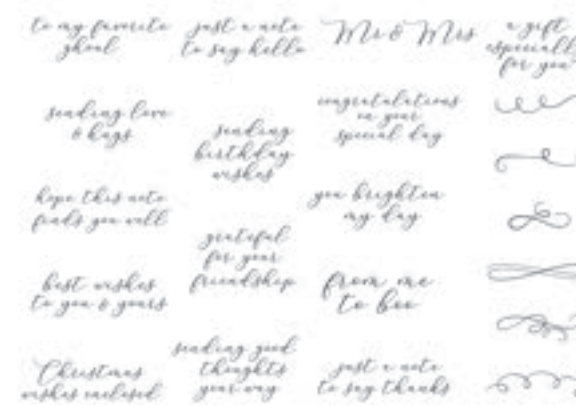 to my favorite
ghoul
just a note
to say hello
Mr & Mrs
a gift
especially
for you
sending love
& hugs
sending
birthday
wishes
congratulations
on your
special day
hope this note
finds you well
grateful
for your
friendship
you brighten
my day
best wishes
to you & yours
from me
to boo
Christmas
wishes enclosed
sending good
thoughts
your way
just a note
to say thanks